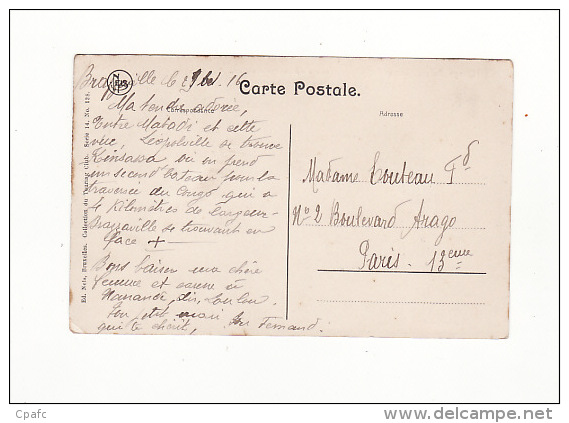 Brazzaville le 16
Carte Postale.
Correspondance
Adresse
Ma tendre adorée,
Entre Matadi et cette
ville, Leopolville se trouve
Kinsassa où on prend
un second bateau pour la
traversée du Congo qui a
4 kilomètres de largeur
Brazzaville se trouvant en
face +
Bons baisers ma chère
femme et
Ton petit mari
qui te chérit, Fernand.
Madame Couteau Fd
No 2 Boulevard Arago
Paris. 13eme
Ed. Nels, Bruxelles. Collection du Touring Club. Serie 14. No. 128.
Cpafc
delcampe.net